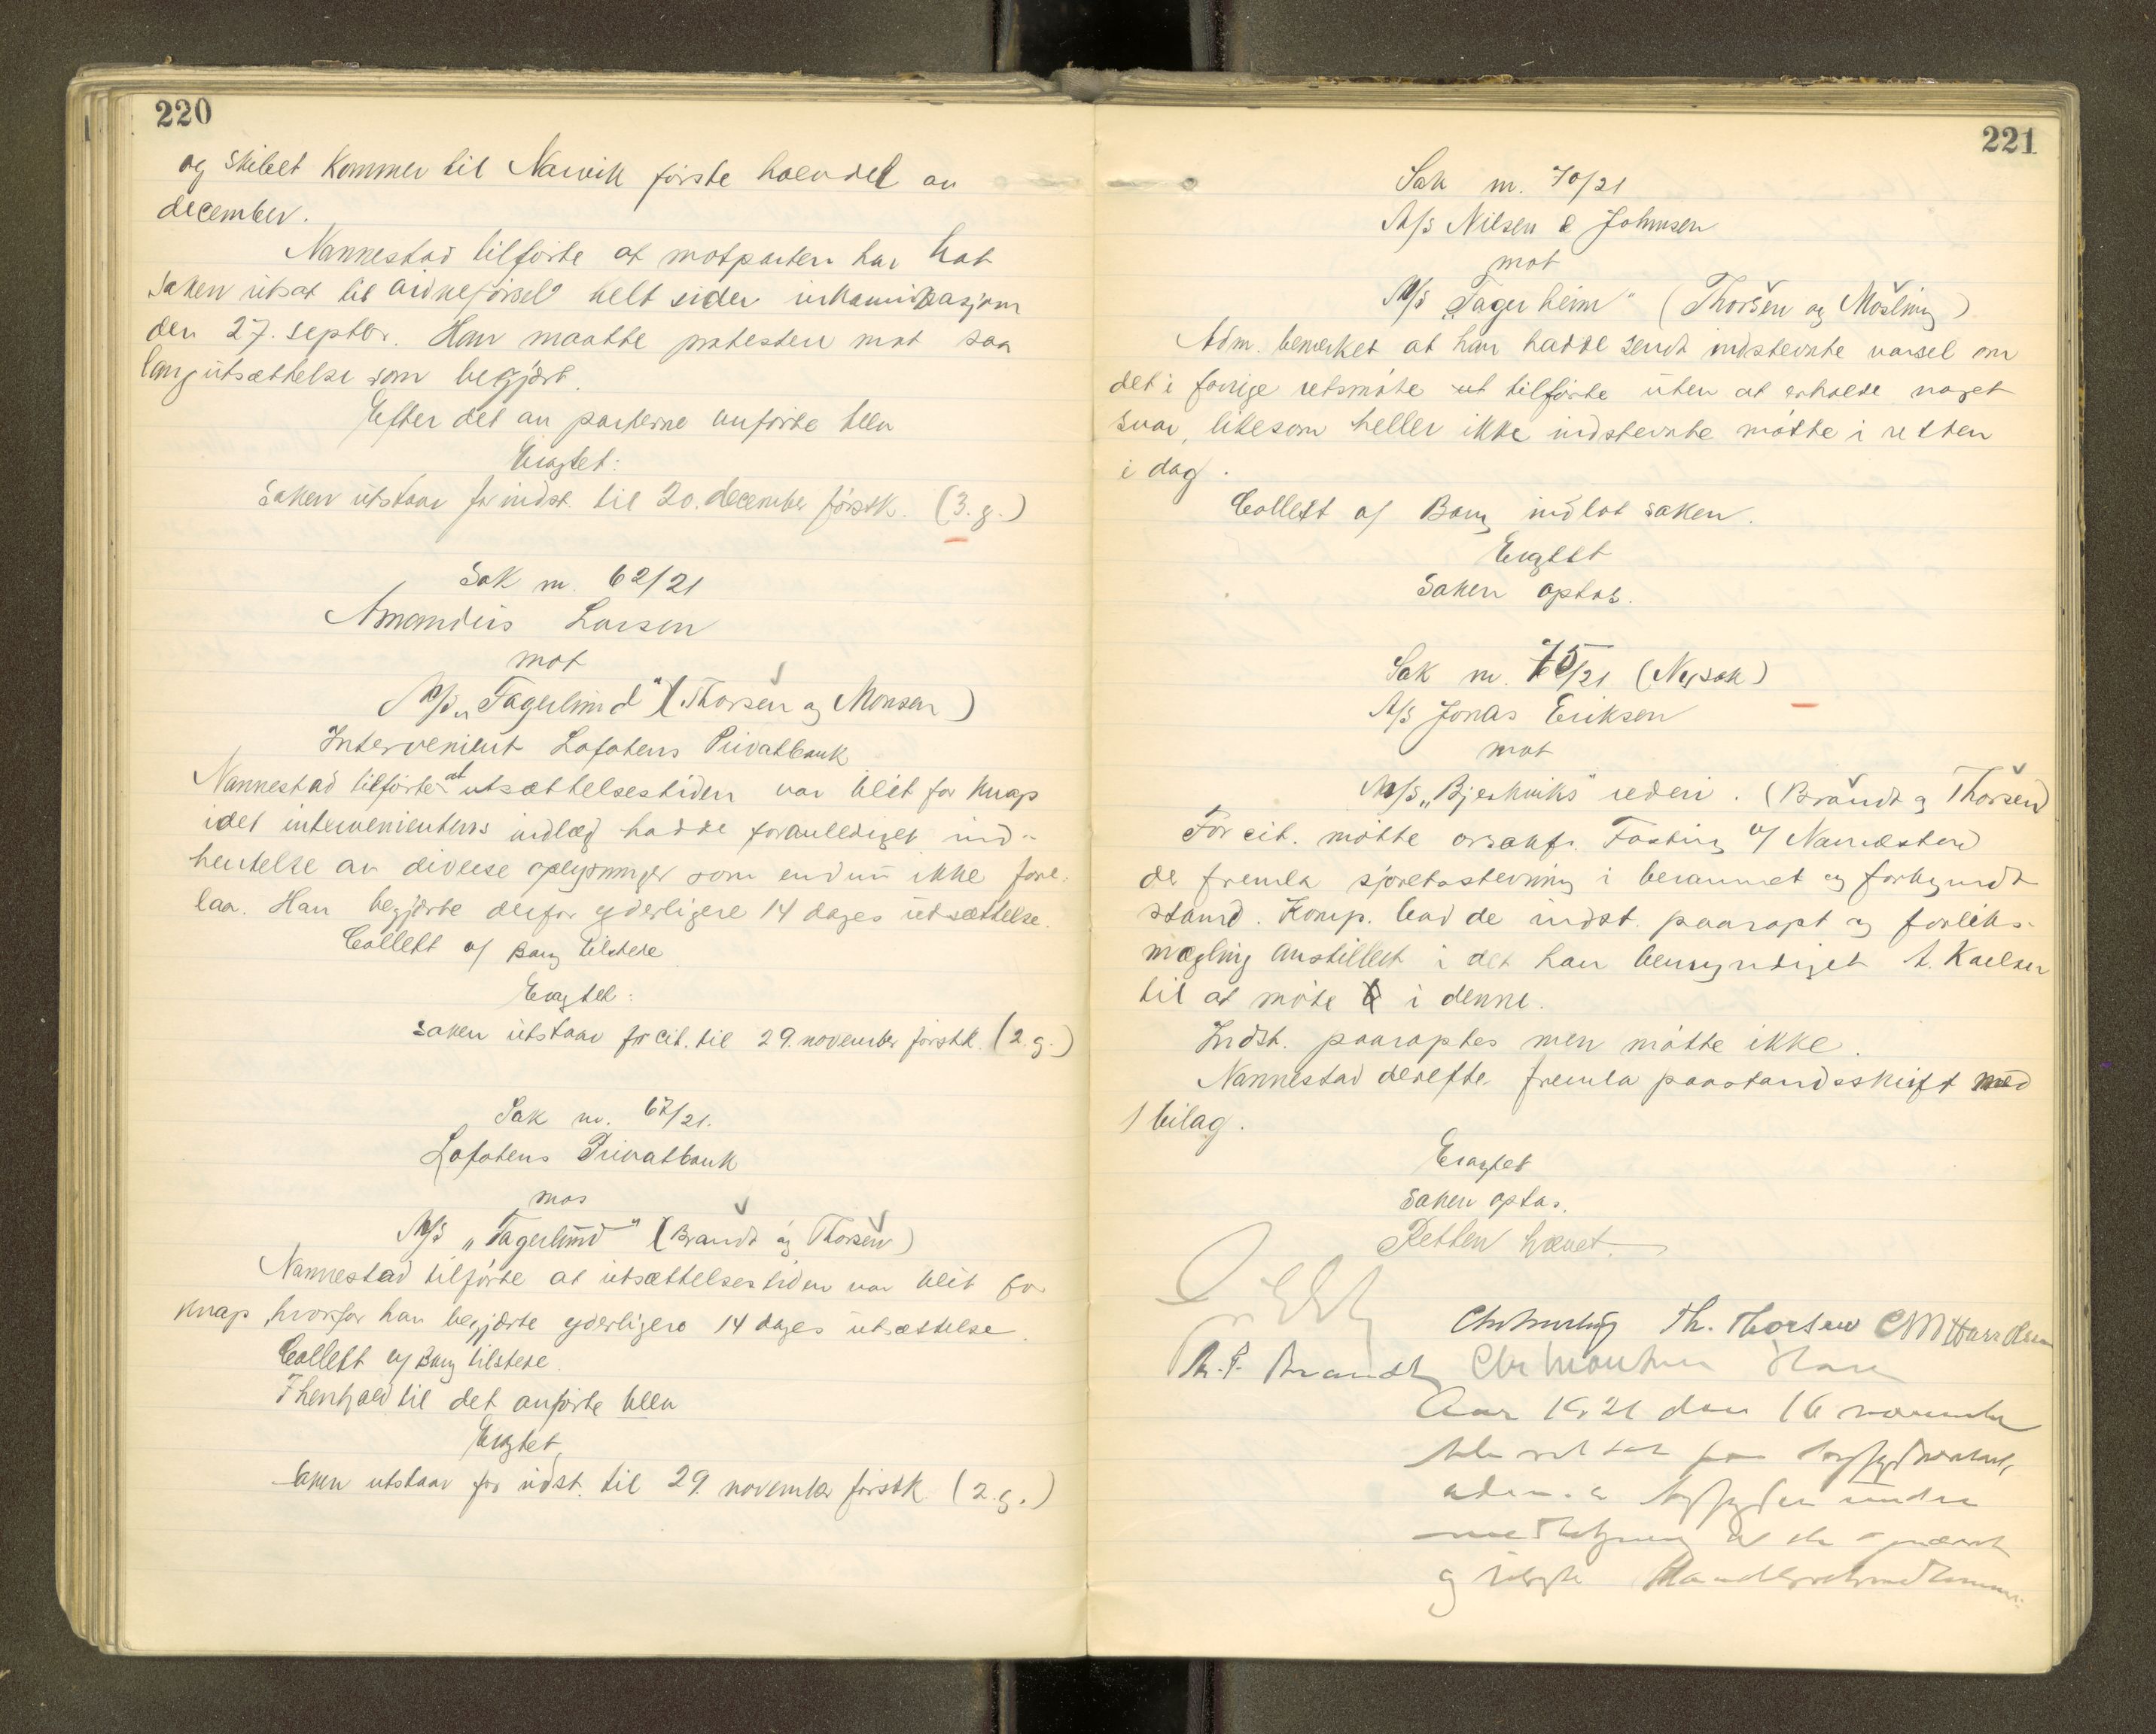 220
og skibet kommer til Narvik første halvdel av
december.
Nannestad tilførte at motparten har hat
saken utsat til vidneførsel helt siden inkaminasjonen
den 27. septbr. Han maatte protestere mot saa
lang utsættelse som begjært.
Efter det av parterne anførte blev
Eragtet:
Saken utstaar for indst. til 20. december førstk. (3. g.)
Sak nr. 62/21
Amandus Larsen
mot
M/S „Fagerlund" (Thorsen og Monsen)
Intervenient Lofotens Privatbank
Nannestad tilførte at utsættelsestiden var blit for knap
idet intervenientens indlæg hadde foranlediget ind-
hentelse av diverse oplysninger som endnu ikke fore-
laa. Han begjærte derfor yderligere 14 dages utsættelse.
Collett og Bang tilstede
Eragtet:
Saken utstaar for cit. til 29. november førstk. (2. g.)
Sak nr. 67/21.
Lofotens Privatbank
mot
M/S „Fagerlund" (Brandt og Thorsen)
Nannestad tilførte at utsættelsestiden var blit for
knap, hvorfor han begjærte yderligere 14 dages utsættelse.
Collett og Bang tilstede.
I henhold til det anførte blev
Eragtet,
Saken utstaar for indst. til 29. november førstk. (2. g.)
221
Sak nr. 70/21
A/S Nilsen & Johnsen
mot
M/S „Fagerheim" (Thorsen og Møsling)
Adm. bemerket at han hadde sendt indstevnte varsel om
det i forrige retsmøte tilførte uten at erholde noget
svar, likesom heller ikke indstevnte møtte i retten
i dag.
Collett og Bang indlot saken.
Eragtet
Saken optas.
Sak nr. 75/21 (Ny sak)
A/S Jonas Eriksen
mot
M/S „Bjerkviks" rederi. (Brandt og Thorsen)
For cit. møtte orsakf. Fasting v/ Nannestad
de fremla sjøretsstevning i berammet og forkyndt
stand. Komp. bad de indst. paaropt og forliks-
mægling anstillet i det han bemyndiget A. Kaelsen
til at møte i denne.
Indst. paaroptes men møtte ikke.
Nannestad derefter fremla paastandsskrift med
1 bilag.
Eragtet
Saken optas.
Retten hævet.
Th. Thorsen
Th. P. Brandt
Aar 1921 den 16 november